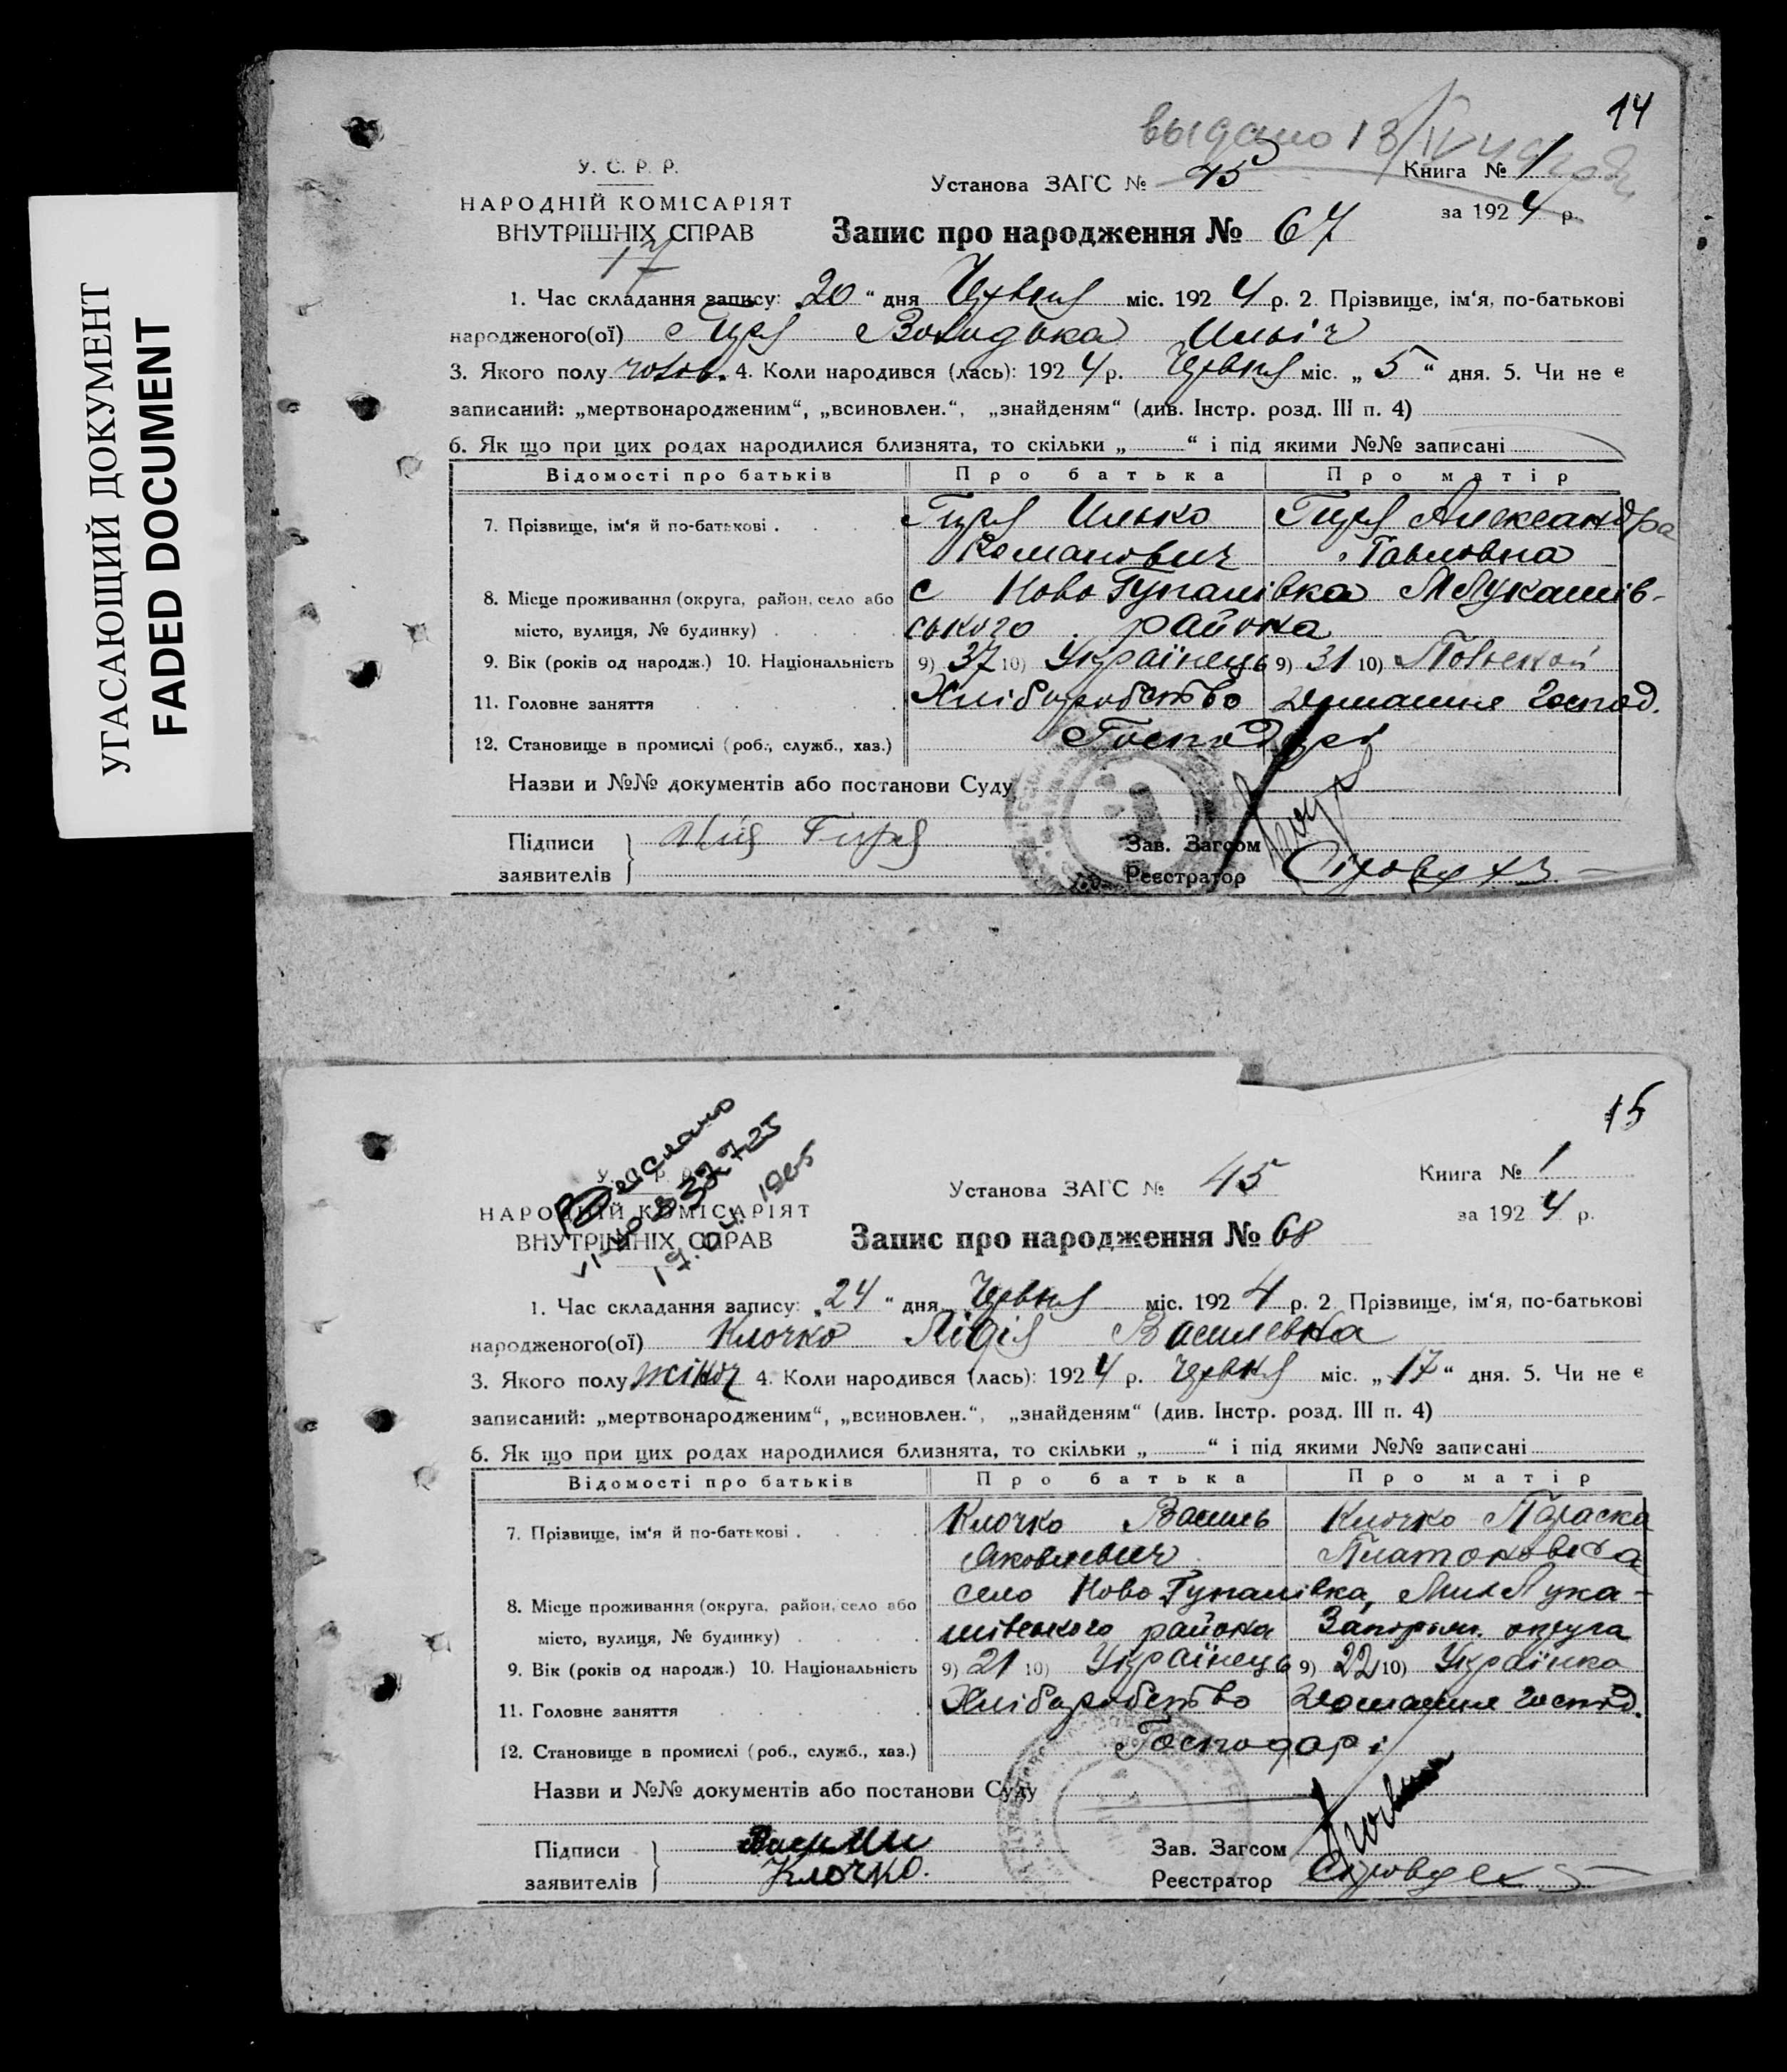 УГАСАЮЩИЙ ДОКУМЕНТ
FADED DOCUMENT
14
выдано 13/IV
У. С. Р. Р.
НАРОДНІЙ КОМІСАРІЯТ
ВНУТРІШНІХ СПРАВ
17
Установа ЗАГС № 45
Книга № 1
за 1924 р.
Запис про народження № 67
1. Час складання запису: „20“ дня Червня міс. 1924 р. 2. Прізвище, ім‘я, по-батькові
народженого(ої) Гиря Володька Ильіч
3. Якого полу чолов. 4. Коли народився (лась): 1924 р. Червня міс. „5“ дня. 5. Чи не є
записаний: „мертвонародженим“, „всиновлен.“, „знайденям“ (див. Інстр. розд. III п. 4)
6. Як що при цих родах народилися близнята, то скільки „ “ і під якими №№ записані
Відомості про батьків Про батька Про матір
7. Прізвище, ім‘я й по-батькові . Гиря Илько Гиря Александра
Романович Павловна
8. Місце проживання (округа, район, село або с Ново Гупалівка М Лукашів-
місто, вулиця, № будинку) ського района
9. Вік (років од народж.) 10. Національність 9) 37 10) Українець 9) 31 10)
11. Головне заняття Хліборобство домашня господ.
12. Становище в промислі (роб., служб., хаз.) Господарі
Назви и №№ документів або постанови Суду
Підписи
заявителів
Илія Гиря
Зав. Загсом
Реєстратор
15
Выслано
337725
19.04.1965
У. С. Р. Р.
НАРОДНІЙ КОМІСАРІЯТ
ВНУТРІШНІХ СПРАВ
Установа ЗАГС № 45
Книга № 1
за 1924 р.
Запис про народження № 68
1. Час складання запису: „24“ дня Червня міс. 1924 р. 2 Прізвище, ім‘я, по-батькові
народженого(ої) Клочко Лідія Василевна
3. Якого полу жіноч 4. Коли народився (лась): 1924 р. Червня міс. „17“ дня. 5. Чи не є
записаний: „мертвонародженим“, „всиновлен.“, „знайденям“ (див. Інстр. розд. III п. 4)
6. Як що при цих родах народилися близнята, то скільки „ “ і під якими №№ записані
Відомості про батьків Про батька Про матір
7. Прізвище, ім‘я й по-батькові . Клочко Василь Клочко Параска
Яковлевич Платоновна
8. Місце проживання (округа, район, село або село Ново Гупалівка, Мих Лука-
місто, вулиця, № будинку) шівського района Запоріж. округа
9. Вік (років од народж.) 10. Національність 9) 21 10) Українець 9) 22 10) Українка
11. Головне заняття Хліборобство Домашня господ.
12. Становище в промислі (роб., служб., хаз.) Господарі
Назви и №№ документів або постанови Суду
Підписи
заявителів
Клочко.
Зав. Загсом
Реєстратор